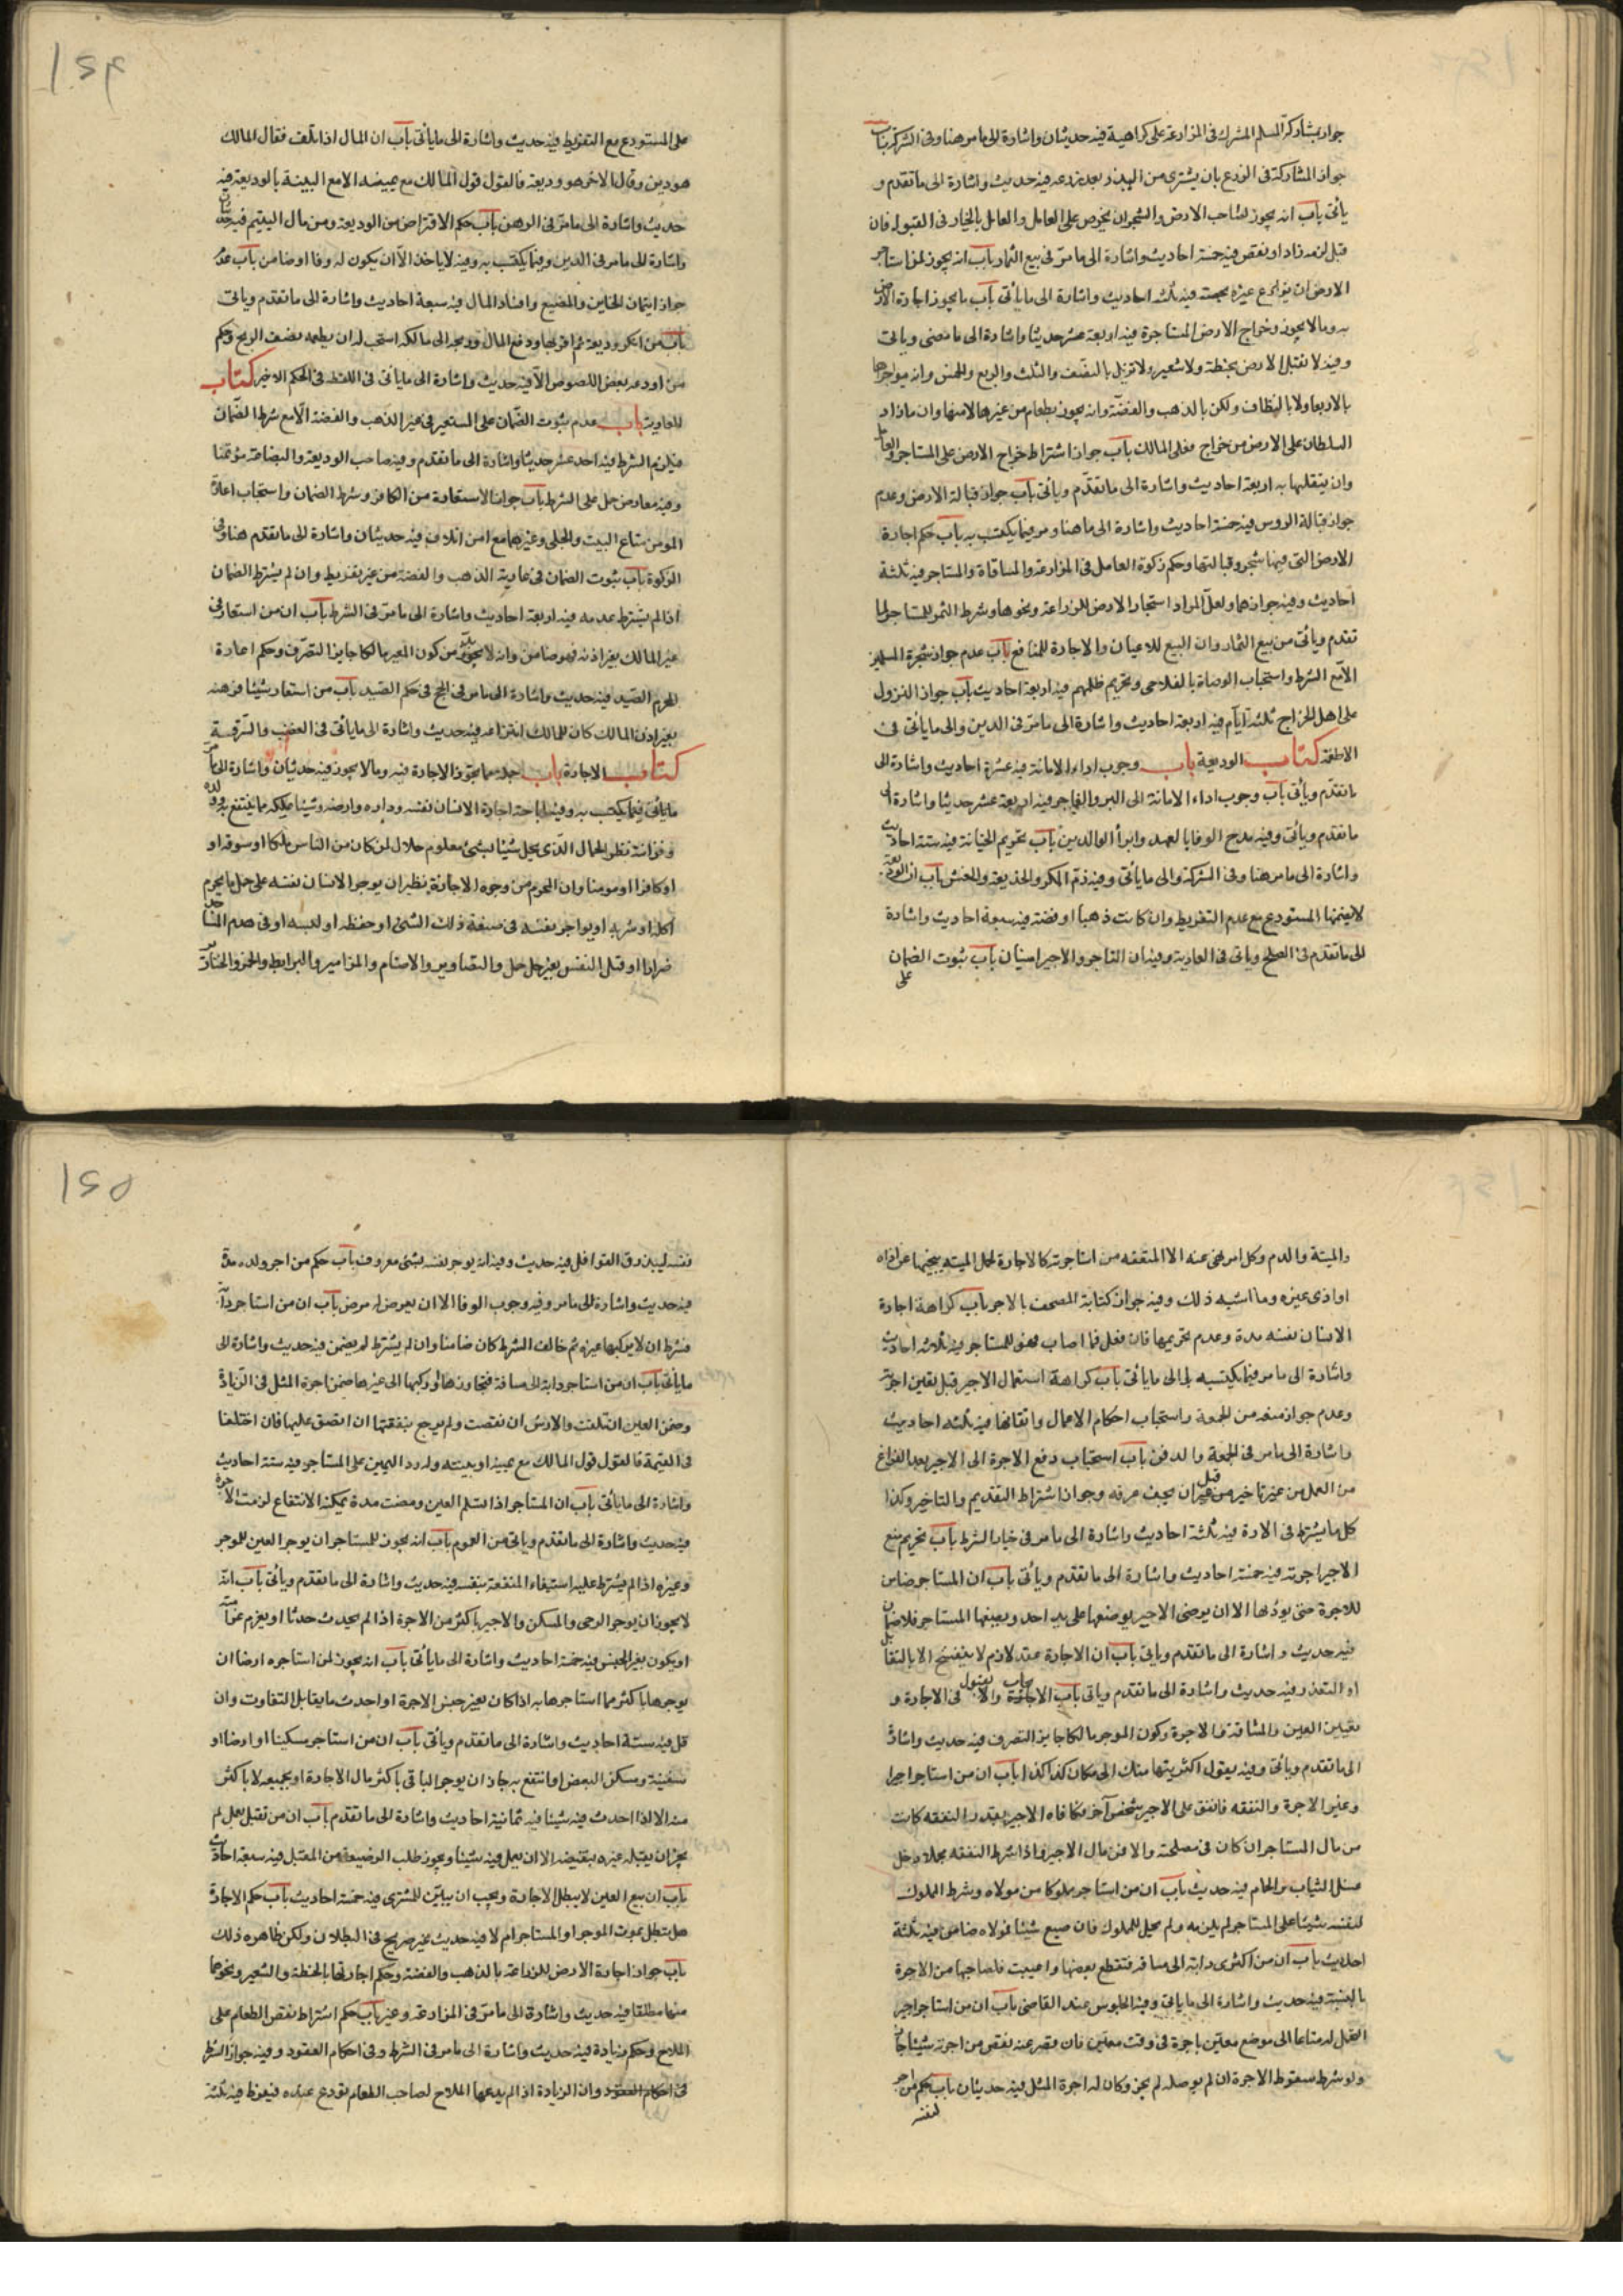 جواز مشاركة المسلم المشرك فى المزارعة على كراهية فيه حديثان واشارة الى ما مر هنا وفى الشركة باب
جواز المشاركة فى الزرع بان يشترى من البذر بعد زرعه فيه حديث واشارة الى ما تقدم و
يأتى باب انه يجوز لصاحب الارض والشجر ان يخرص على العامل والعامل بالخيار فى القبول فان
قبل لزمه زاد او نقص فيه خمسة احاديث واشارة الى ما مرّ فى بيع الثمار باب انه يجوز لمن استاجر
الارض ان يزارع غيره بحصته فيه ثلثة احاديث واشارة الى ما يأتى باب ما يجوز اجارة الارض
به وما لا يجوز وخراج الارض المستاجرة فيه اربعة عشر حديثا واشارة الى ما مضى وياتى
وفيه لا تقبل الارض بحنطة ولا شعير ولا تزيل بالنصف والثلث والربع والخمس وانه يواجرها
بالاربعا ولا بالنظاف ولكن بالذهب والفضة وانه يجوز بطعام من غيرها لا منها وان ما زاد
السلطان على الارض من خراج فعلى المالك باب جواز اشتراط خراج الارض على المستاجر والعامل
وان يتقبلها به اربعة احاديث واشارة الى ما تقدّم ويأتى باب جواز قبالة الارض وعدم
جواز قبالة الروس فيه خمسة احاديث واشارة الى ما هنا ومر فيما يكتسب به باب حكم اجارة
الارض التى فيها شجر وقبالتها وحكم زكوة العامل فى المزارعة والمساقاة والمستاجر فيه ثلثة
احاديث وفيه جوازهما ولعلّ المراد استيجار الارض للزراعة ونحوها وشرط الثمر للمستاجر لما
تقدم ويأتى من بيع الثمار وان البيع للاعيان والاجارة للمنافع باب عدم جواز سخرة المسلمين
الا مع الشرط واستحباب الوصاة بالفلاحين وتحريم ظلمهم فيه اربعة احاديث باب جواز النزول
على اهل الخراج ثلثة ايّام فيه اربعة احاديث واشارة الى ما مر فى الدين والى ما يأتى فى
الاطعمة كتاب الوديعة باب وجوب اداء الامانة فيه عشرة احاديث واشارة الى
ما تقدّم ويأتى باب وجوب اداء الامانة الى البر والفاجر فيه اربعة عشر حديثا واشارة الى
ما تقدم ويأتى وفيه مدح الوفا بالعهد وابرأ الوالدين باب تحريم الخيانة فيه ستة احاديث
واشارة الى ما مر هنا وفى الشركة والى ما يأتى وفيه ذمّ المكر والخديعة والغش باب ان الوديعة
لا يضمنها المستودع مع عدم التفريط وان كانت ذهبا او فضة فيه سبعة احاديث واشارة
الى ما تقدّم فى الصلح وياتى فى العارية وفيه ان التاجر والاجير امينان باب ثبوت الضمان
على
على المستودع مع التفريط فيه حديث واشارة الى ما يأتى باب ان المال اذا تلف فقال المالك
هو دين وقال الاخر هو وديعة فالقول قول المالك مع يمينه الا مع البينة بالوديعة فيه
حديث واشارة الى ما مرّ فى الرهن باب حكم الاقتراض من الوديعة ومن مال اليتيم فيه حديثان
واشارة الى ما مر فى الدين وفيما يكتسب به وفيه لا ياخذ الاّ ان يكون له وفا او ضامن باب عدم
جواز ايتمان الخاين والمضيع وافساد المال فيه سبعة احاديث واشارة الى ما تقدم وياتى
باب من انكر وديعة ثم اقر بها ودفع المال وربحه الى مالكه استحب له ان يعطيه نصف الربح وحكم
من اودعه بعض اللصوص الآ فيه حديث واشارة الى ما يأتى فى اللقطة فى الحكم الاخير كتاب
العارية باب عدم ثبوت الضّمان على المستعير فى غير الذهب والفضة الاّ مع شرط الضّمان
فيلزم الشرط فيه احد عشر حديثا واشارة الى ما تقدم وفيه صاحب الوديعة والبضاعة مؤتمنا
وفيه معارض حمل على الشرط باب جواز الاستعارة من الكافر وشرط الضمان واستحباب اعارة
المومن متاع البيت والحلى وغيرهما مع امن اتلاف فيه حديثان واشارة الى ما تقدم هنا وفى
الزكوة باب ثبوت الضمان فى عارية الذهب والفضة من غير تفريط وان لم يشترط الضمان
اذا لم يشترط عدمه فيه اربعة احاديث واشارة الى ما مرّ فى الشرط باب ان من استعار فى
غير المالك بغير اذنه فهو ضامن وانه لا بد من كون المعير مالكا جايز التصّرف وحكم اعارة
المحرم الصّيد فيه حديث واشارة الى ما مر فى الحج فى حكم الصّيد باب من استعار شيئا فرهنه
بغير اذن المالك كان للمالك انتزاعه فيه حديث واشارة الى ما يأتى فى الغصب والسّرقة
كتاب الاجارة باب جملة مما يجوز الاجارة فيه وما لا يجوز فيه حديثان واشارة الى ما مر
ما يأتى فيما يكتسب به وفيه اباحة اجارة الانسان نفسه وداره وارضه وشيئا يملكه مما ينتفع به وولده
وقرابته نظير الحمال الذّى يحمل شيئا بشئ معلوم حلال لمن كان من الناس ملكا او سوقة او
او كافرا او مومنا وان المحرم من وجوه الاجارة نظير ان يوجر الانسان نفسه على حمل ما يحرم
اكله او شربه او يواجر نفسه فى صنعة ذلك الشئ او حفظه او لبسه او فى هدم المساجد
ضرارا او قتل النفس بغير حل حمل والتصاوير والاصنام والمزامير والبرابط والخمر والخنازير
والميتة والدم وكل امر نهى عنه الا لمنفعة من استاجرته كالاجارة لحمل الميتة ينحيها عن اذاه
او اذى غيره وما اشبه ذلك وفيه جواز كتابة المصحف بالاجر باب كراهة اجارة
الانسان نفسه مدة وعدم تحريمها فان فعل فما اصاب فهو للمستاجر فيه ثلاثة احاديث
واشارة الى ما مر فيما يكتسب به والى ما يأتى باب كراهة استعمال الاجير قبل تعيين اجرته
وعدم جواز منعه من الجمعة واستحباب احكام الاعمال واتقانها فيه ثلثة احاديث
واشارة الى ما مر فى الجمعة والدفن باب استحباب دفع الاجرة الى الاجير بعد الفراغ
من العمل من غير تاخير قبل ان يجف عرقه وجواز اشتراط التقديم والتاخير وكذا
كل ما يشترط فى الادة فيه ثلثة احاديث واشارة الى ما مر فى خيار الشرط باب تحريم منع
الاجير اجرته فيه خمسة احاديث واشارة الى ما تقدم ويأتى باب ان المستاجر ضامن
للاجرة حتى يودّيها الا ان يرضى الاجير بوضعها على يد احد ويضعها المستاجر فلا ضمان
فيه حديث واشارة الى ما تقدم ويأتى باب ان الاجارة عقد لازم لا ينفسخ الا بالتقايل
او التعذر فيه حديث واشارة الى ما تقدم وياتى باب الايجاب والقبول فى الاجارة و
تعيين العين والمسافة والاجرة وكون الموجر مالكا جايز التصرف فيه حديث واشارة
الى ما تقدم ويأتى وفيه يقول اكتريتها منك الى مكان كذا كذا باب ان من استاجر اجيرا
وعين الاجرة والنفقة فانفق على الاجير شخص آخر فكافاه الاجير بقدر النفقة كانت
من مال المستاجر ان كان فى مصلحته والا فمن مال الاجير واذا شرط النفقة مجملا دخل
غسل الثياب والحمام فيه حديث باب ان من استاجر مملوكا من مولاه وشرط المملوك
لنفسه شيئا على المستاجر لم يلزمه ولم يحل للمملوك فان ضيع شيئا فمولاه ضامن فيه ثلثة
احاديث باب ان من اكترى دابة الى مسافة فقطع بعضها واعيت فلصاحبها من الاجرة
بالنسبة فيه حديث واشارة الى ما ياتى وفيه الجلوس عند القاضى باب ان من استاجر اجير
ليحمل له متاعا الى موضع معيّن باجرة فى وقت معيّن فان قصر عنه نقص من اجرته شيئا جاز
ولو شرط سقوط الاجرة ان لم يوصله لم يجز وكان له اجرة المثل فيه حديثان باب حكم من اجر
نفسه
نفسه ليبذرق القوافل فيه حديث وفيه انه يوجر نفسه بشئ معروف باب حكم من اجر ولده مدة
فيه حديث واشارة الى ما مر وفيه وجوب الوفا الا ان يعرض له مرض باب ان من استاجر دابّة
فشرط ان لا يركبها غيره ثم خالف الشرط كان ضامنا وان لم يشترط لم يضمن فيه حديث واشارة الى
ما يأتى باب ان من استاجر دابة الى مسافة فتجاوزها او ركبها الى غيرها ضمن اجرة المثل فى الزيادة
وضمن العين ان تلفت والارش ان نقصت ولم يرجع بنفقتها ان انفق عليها فان اختلفا
فى القيمة فالقول قول المالك مع يمينه او بينته وله رد اليمين على المستاجر فيه ستة احاديث
واشارة الى ما يأتى باب ان المستاجر اذا تسلم العين ومضت مدة يمكنه الانتفاع لزمت الاجرة
فيه حديث واشارة الى ما تقدم وياتى من العموم باب انه يجوز للمستاجر ان يوجر العين للموجر
وغيره اذا لم يشترط عليه استيفاء المنفعة بنفسه فيه حديث واشارة الى ما تقدم ويأتى باب انّه
لا يجوز ان يوجر الرحى والمسكن والاجير باكثر من الاجرة اذا لم يحدث حدثا او يغرم غرامة
او يكون بغير الجنس فيه خمسة احاديث واشارة الى ما يأتى باب انه يجوز لمن استاجره ارضا ان
يوجرها باكثر مما استاجرها به اذا كان بغير جنس الاجرة او احدث ما يقابل التفاوت وان
قل فيه ستة احاديث واشارة الى ما تقدم ويأتى باب ان من استاجر مسكنا او ارضا او
سفينة وسكن البعض او انتفع به جاز ان يوجر الباقى باكثر مال الاجارة او بجميعه لا باكثر
منه الا اذا احدث فيه شيئا فيه ثمانية احاديث واشارة الى ما تقدم باب ان من تقبل بعمل لم
يجز ان يقبله غيره بنقيصة الا ان يعمل فيه شيئا ويجوز طلب الوضيعة من المقبل فيه سبعة احاديث
باب ان بيع العين لا يبطل الاجارة ويجب ان يبيّن للمشترى فيه خمسة احاديث باب حكم الاجارة
هل تبطل بموت الموجر او المستاجر ام لا فيه حديث غير صريح فى البطلان ولكن ظاهره ذلك
باب جواز اجارة الارض للزراعة بالذهب والفضة وحكم اجارتها بالحنطة والشعير ونحوها
منها مطلقا فيه حديث واشارة الى ما مرّ فى المزارعة وغير باب حكم اشتراط نقص الطعام على
الملاح وحكم زيادة فيه حديث واشارة الى ما مر فى الشرط وفى احكام العقود وفيه جواز الشرط
فى احكام العقود وان الزيادة اذا لم يدعها الملاح لصاحب الطعام